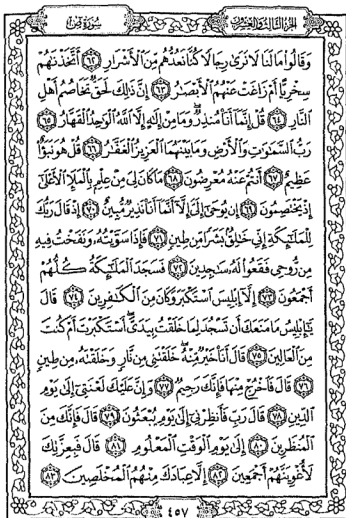 الجزء الثالث والعشرون سورة ص
وَقَالُوا۟ مَا لَنَا لَا نَرَىٰ رِجَالًا كُنَّا نَعُدُّهُم مِّنَ ٱلْأَشْرَارِ ٦٢ أَتَّخَذْنَٰهُمْ
سِخْرِيًّا أَمْ زَاغَتْ عَنْهُمُ ٱلْأَبْصَٰرُ ٦٣ إِنَّ ذَٰلِكَ لَحَقٌّ تَخَاصُمُ أَهْلِ
ٱلنَّارِ ٦٤ قُلْ إِنَّمَآ أَنَا۠ مُنذِرٌ وَمَا مِنْ إِلَٰهٍ إِلَّا ٱللَّهُ ٱلْوَٰحِدُ ٱلْقَهَّارُ ٦٥
رَبُّ ٱلسَّمَٰوَٰتِ وَٱلْأَرْضِ وَمَا بَيْنَهُمَا ٱلْعَزِيزُ ٱلْغَفَّٰرُ ٦٦ قُلْ هُوَ نَبَؤٌا۟
عَظِيمٌ ٦٧ أَنتُمْ عَنْهُ مُعْرِضُونَ ٦٨ مَا كَانَ لِىَ مِنْ عِلْمٍۭ بِٱلْمَلَإِ ٱلْأَعْلَىٰٓ
إِذْ يَخْتَصِمُونَ ٦٩ إِن يُوحَىٰٓ إِلَىَّ إِلَّآ أَنَّمَآ أَنَا۠ نَذِيرٌ مُّبِينٌ ٧٠ إِذْ قَالَ رَبُّكَ
لِلْمَلَٰٓئِكَةِ إِنِّى خَٰلِقٌۢ بَشَرًا مِّن طِينٍ ٧١ فَإِذَا سَوَّيْتُهُۥ وَنَفَخْتُ فِيهِ
مِن رُّوحِى فَقَعُوا۟ لَهُۥ سَٰجِدِينَ ٧٢ فَسَجَدَ ٱلْمَلَٰٓئِكَةُ كُلُّهُمْ
أَجْمَعُونَ ٧٣ إِلَّآ إِبْلِيسَ ٱسْتَكْبَرَ وَكَانَ مِنَ ٱلْكَٰفِرِينَ ٧٤ قَالَ
يَٰٓإِبْلِيسُ مَا مَنَعَكَ أَن تَسْجُدَ لِمَا خَلَقْتُ بِيَدَىَّ أَسْتَكْبَرْتَ أَمْ كُنتَ
مِنَ ٱلْعَالِينَ ٧٥ قَالَ أَنَا۠ خَيْرٌ مِّنْهُ خَلَقْتَنِى مِن نَّارٍ وَخَلَقْتَهُۥ مِن طِينٍ
٧٦ قَالَ فَٱخْرُجْ مِنْهَا فَإِنَّكَ رَجِيمٌ ٧٧ وَإِنَّ عَلَيْكَ لَعْنَتِىٓ إِلَىٰ يَوْمِ
ٱلدِّينِ ٧٨ قَالَ رَبِّ فَأَنظِرْنِىٓ إِلَىٰ يَوْمِ يُبْعَثُونَ ٧٩ قَالَ فَإِنَّكَ مِنَ
ٱلْمُنظَرِينَ ٨٠ إِلَىٰ يَوْمِ ٱلْوَقْتِ ٱلْمَعْلُومِ ٨١ قَالَ فَبِعِزَّتِكَ
لَأُغْوِيَنَّهُمْ أَجْمَعِينَ ٨٢ إِلَّا عِبَادَكَ مِنْهُمُ ٱلْمُخْلَصِينَ ٨٣
٤٥٧